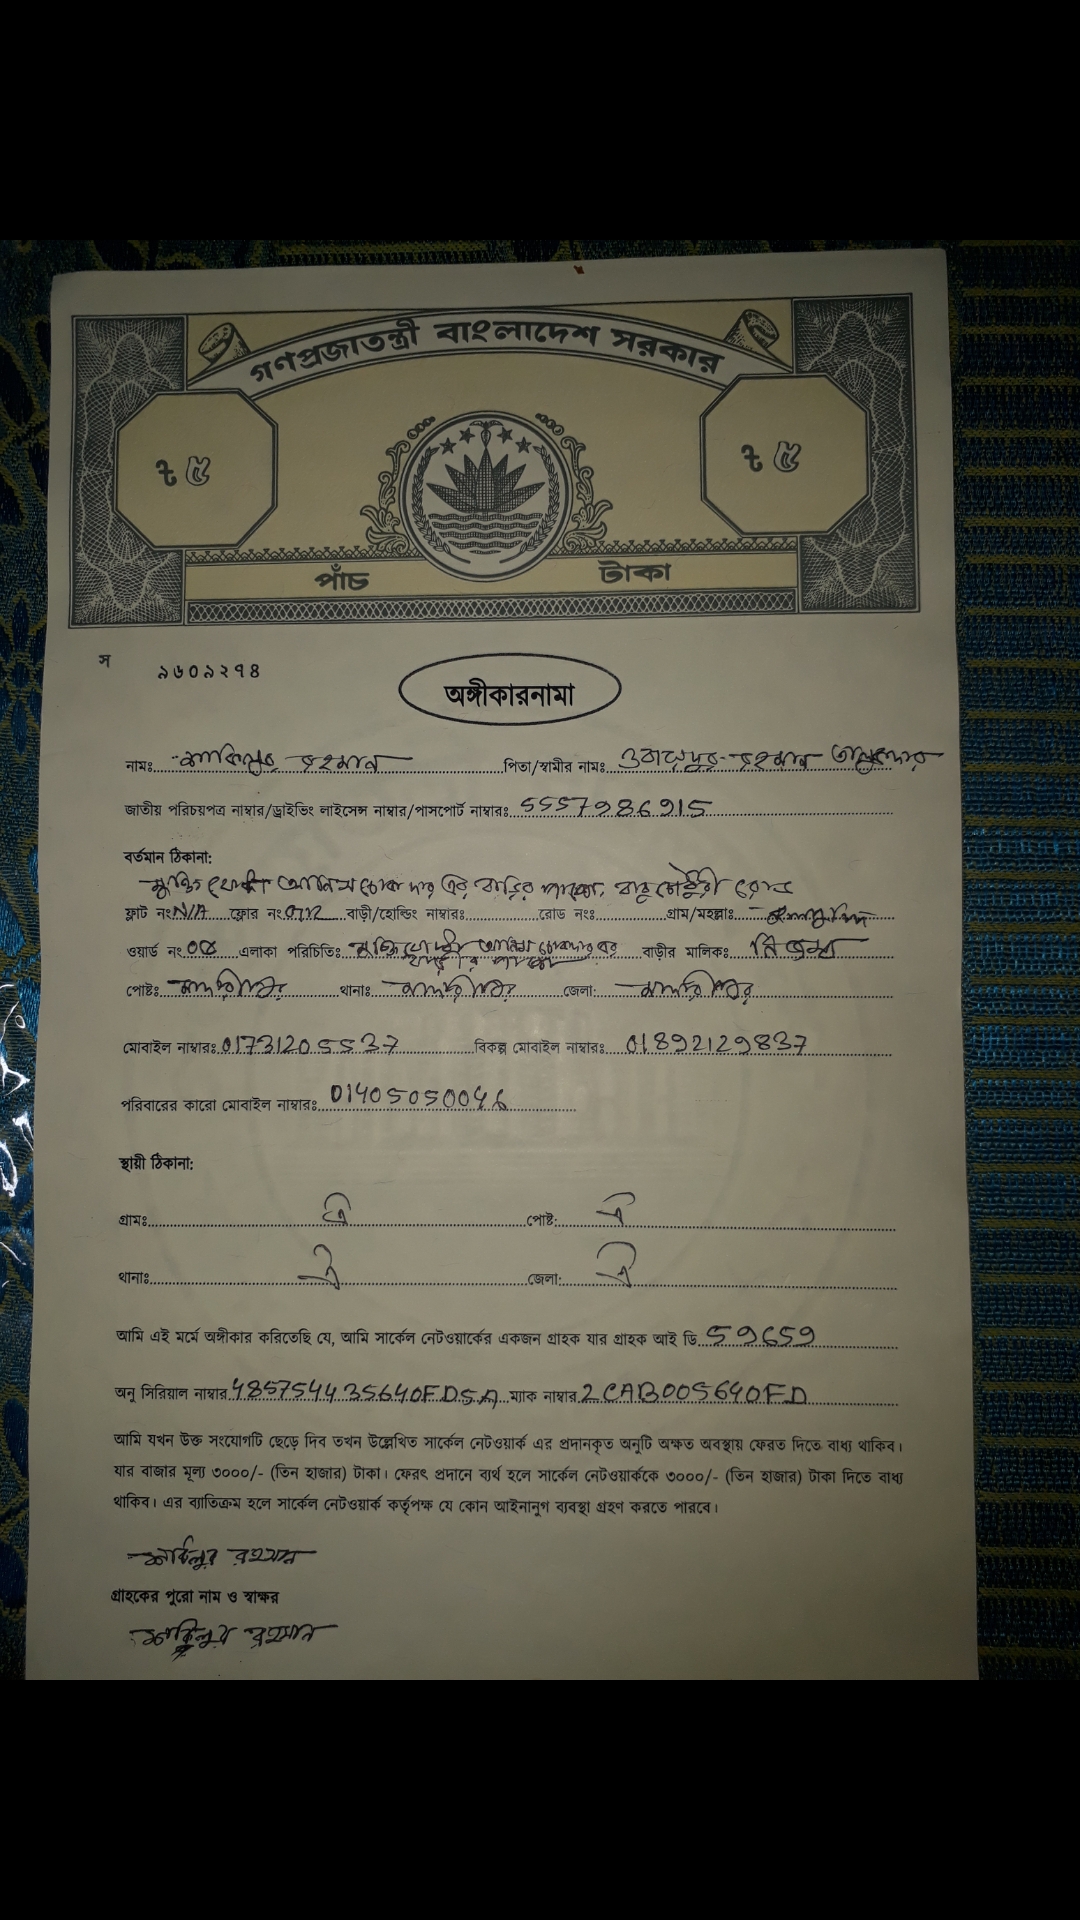 গণপ্রজাতন্ত্রী বাংলাদেশ সরকার
ট ৫ ট ৫
পাঁচ টাকা
স ৯৬০৯২৭৪
অঙ্গীকারনামা
নামঃ শাকিলুর রহমান পিতা/স্বামীর নামঃ ওবায়দুর রহমান তালুকদার
জাতীয় পরিচয়পত্র নাম্বার/ড্রাইভিং লাইসেন্স নাম্বার/পাসপোর্ট নাম্বারঃ 5557986915
বর্তমান ঠিকানা:
আনিস চোকদার এর বাড়ির পাশে, বাবু চৌধুরী রোড
ফ্লাট নং N/A ফ্লোর নং বাড়ী/হোল্ডিং নাম্বারঃ রোড নংঃ গ্রাম/মহল্লাঃ
ওয়ার্ড নং এলাকা পরিচিতিঃ আনিস চোকদার এর বাড়ীর পাশে বাড়ীর মালিকঃ নিজস্ব
পোষ্টঃ মাদারীপুর থানাঃ মাদারীপুর জেলা: মাদারীপুর
মোবাইল নাম্বারঃ 01731205537 বিকল্প মোবাইল নাম্বারঃ 01892129837
পরিবারের কারো মোবাইল নাম্বারঃ 01405050046
স্থায়ী ঠিকানা:
গ্রামঃ ঐ পোষ্ট: ঐ
থানাঃ ঐ জেলা: ঐ
আমি এই মর্মে অঙ্গীকার করিতেছি যে, আমি সার্কেল নেটওয়ার্কের একজন গ্রাহক যার গ্রাহক আই ডি 59659
অনু সিরিয়াল নাম্বার 485754435640FD5A ম্যাক নাম্বার 2CAB005640FD
আমি যখন উক্ত সংযোগটি ছেড়ে দিব তখন উল্লেখিত সার্কেল নেটওয়ার্ক এর প্রদানকৃত অনুটি অক্ষত অবস্থায় ফেরত দিতে বাধ্য থাকিব।
যার বাজার মূল্য ৩০০০/- (তিন হাজার) টাকা। ফেরৎ প্রদানে ব্যর্থ হলে সার্কেল নেটওয়ার্ককে ৩০০০/- (তিন হাজার) টাকা দিতে বাধ্য
থাকিব। এর ব্যাতিক্রম হলে সার্কেল নেটওয়ার্ক কর্তৃপক্ষ যে কোন আইনানুগ ব্যবস্থা গ্রহণ করতে পারবে।
শাকিলুর রহমান
গ্রাহকের পুরো নাম ও স্বাক্ষর
শাকিলুর রহমান